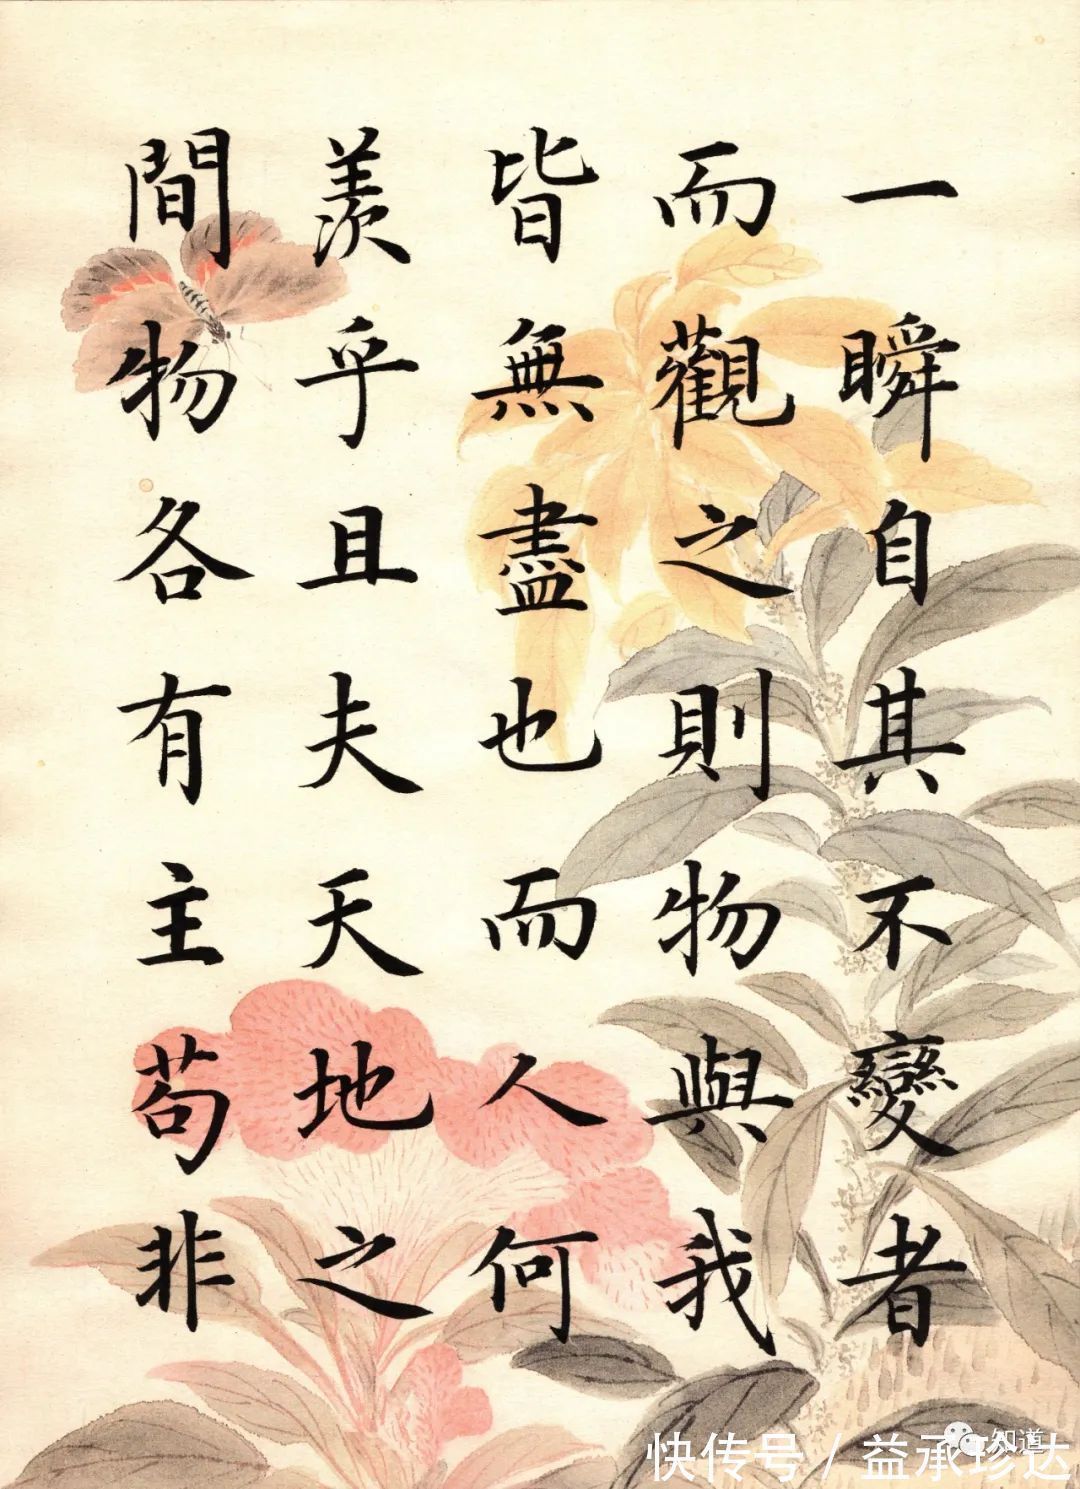 一瞬自其不變者
而觀之則物與我
皆無盡也而人何
羨乎且夫天地之
間物各有主苟非
知道
快传号 / 益承珍达